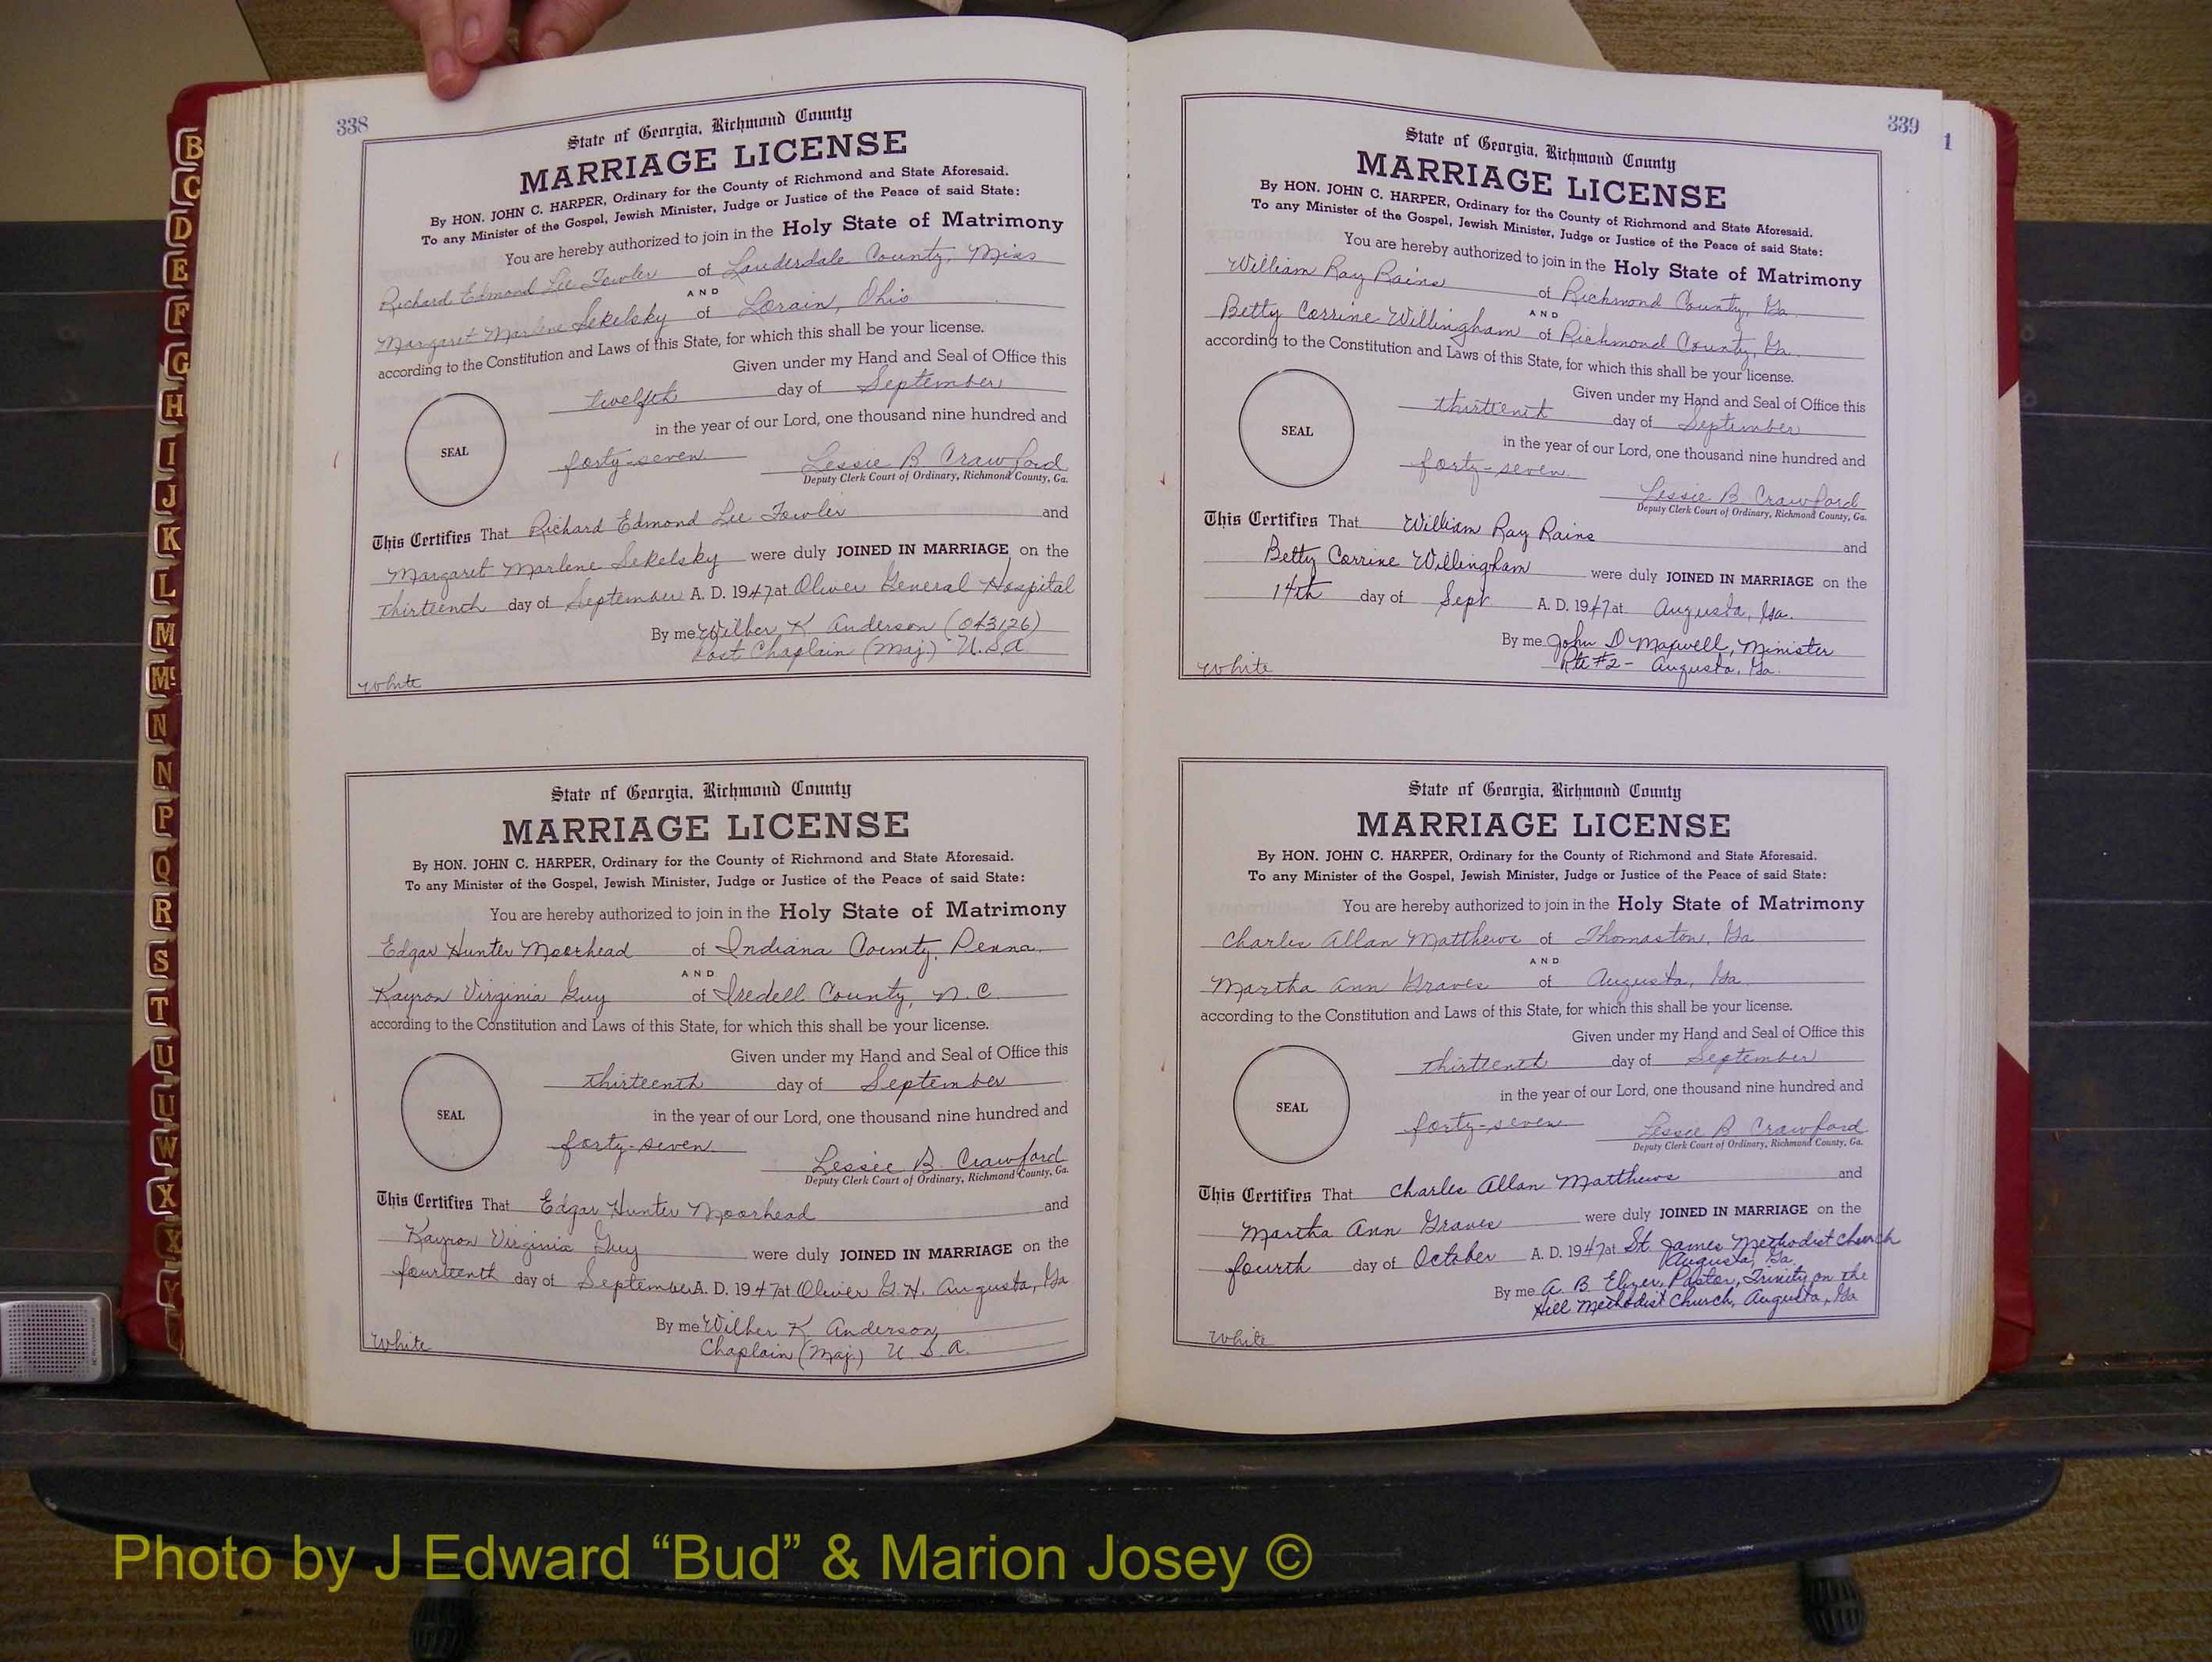 B
C
D
E
F
G
H
I
J
K
L
M
Mc
N
N
P
Q
R
S
T
U
U
W
X
X
Y
338
State of Georgia, Richmond County
MARRIAGE LICENSE
By HON. JOHN C. HARPER, Ordinary for the County of Richmond and State Aforesaid.
To any Minister of the Gospel, Jewish Minister, Judge or Justice of the Peace of said State:
You are hereby authorized to join in the Holy State of Matrimony
Richard Edmond Lee Fowler of Lauderdale County, Miss
AND
Margaret Marlene Sekelsky of Lorain, Ohio
according to the Constitution and Laws of this State, for which this shall be your license.
Given under my Hand and Seal of Office this
twelfth day of September
in the year of our Lord, one thousand nine hundred and
SEAL
forty-seven Lessie B Crawford
Deputy Clerk Court of Ordinary, Richmond County, Ga.
This Certifies That Richard Edmond Lee Fowler and
Margaret Marlene Sekelsky were duly JOINED IN MARRIAGE on the
thirteenth day of September A. D. 1947 at Oliver General Hospital
By me Wilber K Anderson (043126)
Post Chaplain (Maj.) U.S.A.
White
State of Georgia, Richmond County
MARRIAGE LICENSE
By HON. JOHN C. HARPER, Ordinary for the County of Richmond and State Aforesaid.
To any Minister of the Gospel, Jewish Minister, Judge or Justice of the Peace of said State:
You are hereby authorized to join in the Holy State of Matrimony
Edgar Hunter Moorhead of Indiana County, Penna.
AND
Kayron Virginia Guy of Iredell County, N.C.
according to the Constitution and Laws of this State, for which this shall be your license.
Given under my Hand and Seal of Office this
thirteenth day of September
in the year of our Lord, one thousand nine hundred and
SEAL
forty-seven. Lessie B. Crawford
Deputy Clerk Court of Ordinary, Richmond County, Ga.
This Certifies That Edgar Hunter Moorhead and
Kayron Virginia Guy were duly JOINED IN MARRIAGE on the
fourteenth day of September A. D. 1947 at Oliver G.H. Augusta, Ga
By me Wilber K. Anderson,
Chaplain (Maj.) U.S.A.
White
339
1
State of Georgia, Richmond County
MARRIAGE LICENSE
By HON. JOHN C. HARPER, Ordinary for the County of Richmond and State Aforesaid.
To any Minister of the Gospel, Jewish Minister, Judge or Justice of the Peace of said State:
You are hereby authorized to join in the Holy State of Matrimony
William Ray Rains of Richmond County, Ga.
AND
Betty Corrine Willingham of Richmond County, Ga.
according to the Constitution and Laws of this State, for which this shall be your license.
Given under my Hand and Seal of Office this
thirteenth day of September
in the year of our Lord, one thousand nine hundred and
SEAL
forty-seven Lessie B Crawford
Deputy Clerk Court of Ordinary, Richmond County, Ga.
This Certifies That William Ray Rains and
Betty Corrine Willingham were duly JOINED IN MARRIAGE on the
14th day of Sept. A. D. 1947 at Augusta, Ga.
By me John D Maxwell, Minister
Rte #2 - Augusta, Ga.
White
State of Georgia, Richmond County
MARRIAGE LICENSE
By HON. JOHN C. HARPER, Ordinary for the County of Richmond and State Aforesaid.
To any Minister of the Gospel, Jewish Minister, Judge or Justice of the Peace of said State:
You are hereby authorized to join in the Holy State of Matrimony
Charles Allan Matthews of Thomaston, Ga
AND
Martha Ann Graves of Augusta, Ga.
according to the Constitution and Laws of this State, for which this shall be your license.
Given under my Hand and Seal of Office this
thirteenth day of September
in the year of our Lord, one thousand nine hundred and
SEAL
forty-seven Lessie B Crawford
Deputy Clerk Court of Ordinary, Richmond County, Ga.
This Certifies That Charles Allan Matthews and
Martha Ann Graves were duly JOINED IN MARRIAGE on the
fourth day of October A. D. 1947 at St. James Methodist Church
Augusta, Ga.
By me A B Elizer, Pastor, Trinity on the
Hill Methodist Church, Augusta, Ga
White
Photo by J Edward “Bud” & Marion Josey ©